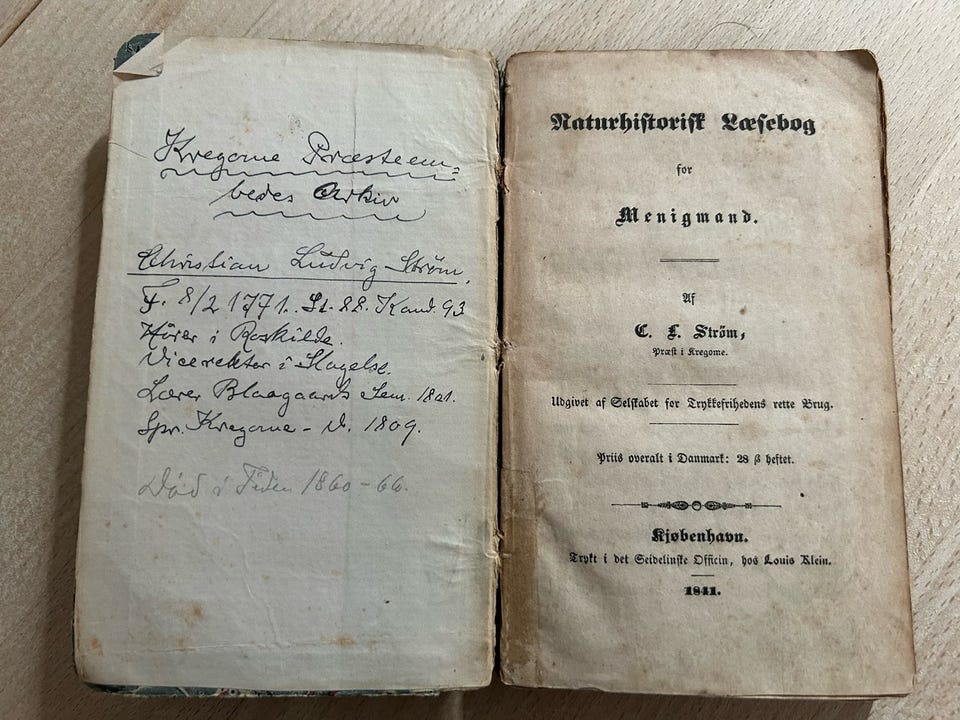 Kregome Præsteem=
bedes Arkiv
Christian Ludvig Strøm.
F. 8/2 1771. St. 88. Kand. 93
Hører i Roskilde.
Vicerektor i Slagelse.
Lærer Blaagaards Sem. 1801.
Spr. Kregome – V. 1809.
Död i Tiden 1860–66.
Naturhistorisk Læsebog
for
Menigmand.
Af
C. L. Ström,
Præst i Kregome.
Udgivet af Selskabet for Trykkefrihedens rette Brug.
Priis overalt i Danmark: 28 ß heftet.
Kjøbenhavn.
Trykt i det Seidelinske Officin, hos Louis Klein.
1841.